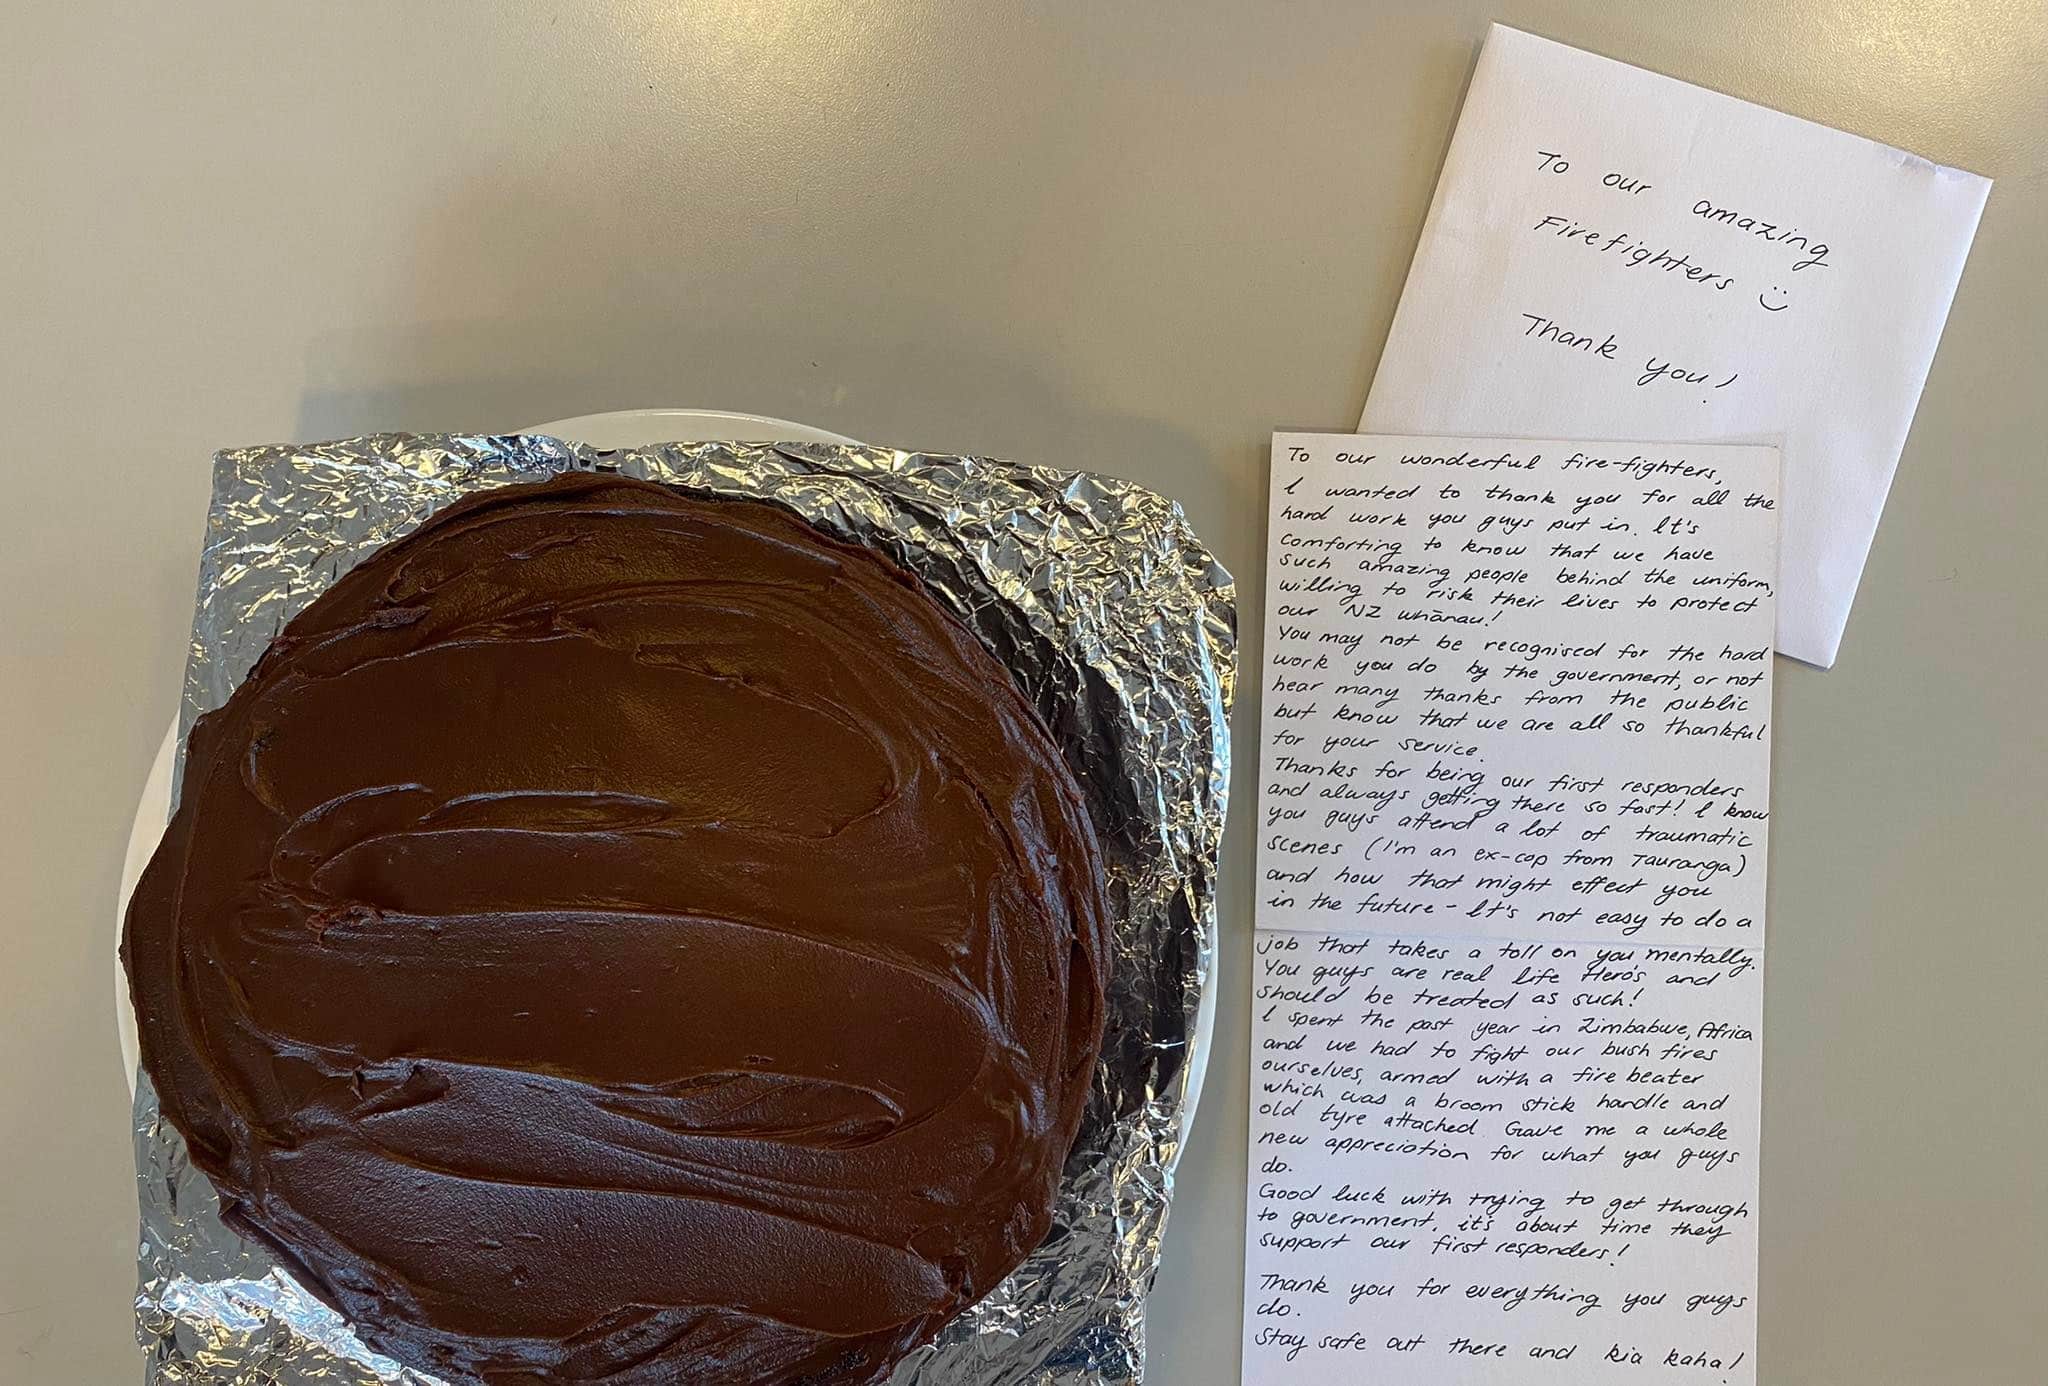 To our amazing
Firefighters :)
Thank you!
To our wonderful fire-fighters,
I wanted to thank you for all the
hard work you guys put in. It's
comforting to know that we have
such amazing people behind the uniform,
willing to risk their lives to protect
our NZ whānau!
You may not be recognised for the hard
work you do by the government, or not
hear many thanks from the public
but know that we are all so thankful
for your service.
Thanks for being our first responders
and always getting there so fast! I know
you guys attend a lot of traumatic
scenes (I'm an ex-cop from Tauranga)
and how that might effect you
in the future - It's not easy to do a
job that takes a toll on you mentally.
You guys are real life Hero's and
should be treated as such!
I spent the past year in Zimbabwe, Africa
and we had to fight our bush fires
ourselves, armed with a fire beater
which was a broom stick handle and
old tyre attached. Gave me a whole
new appreciation for what you guys
do.
Good luck with trying to get through
to government, it's about time they
support our first responders!
Thank you for everything you guys
do.
Stay safe out there and kia kaha!